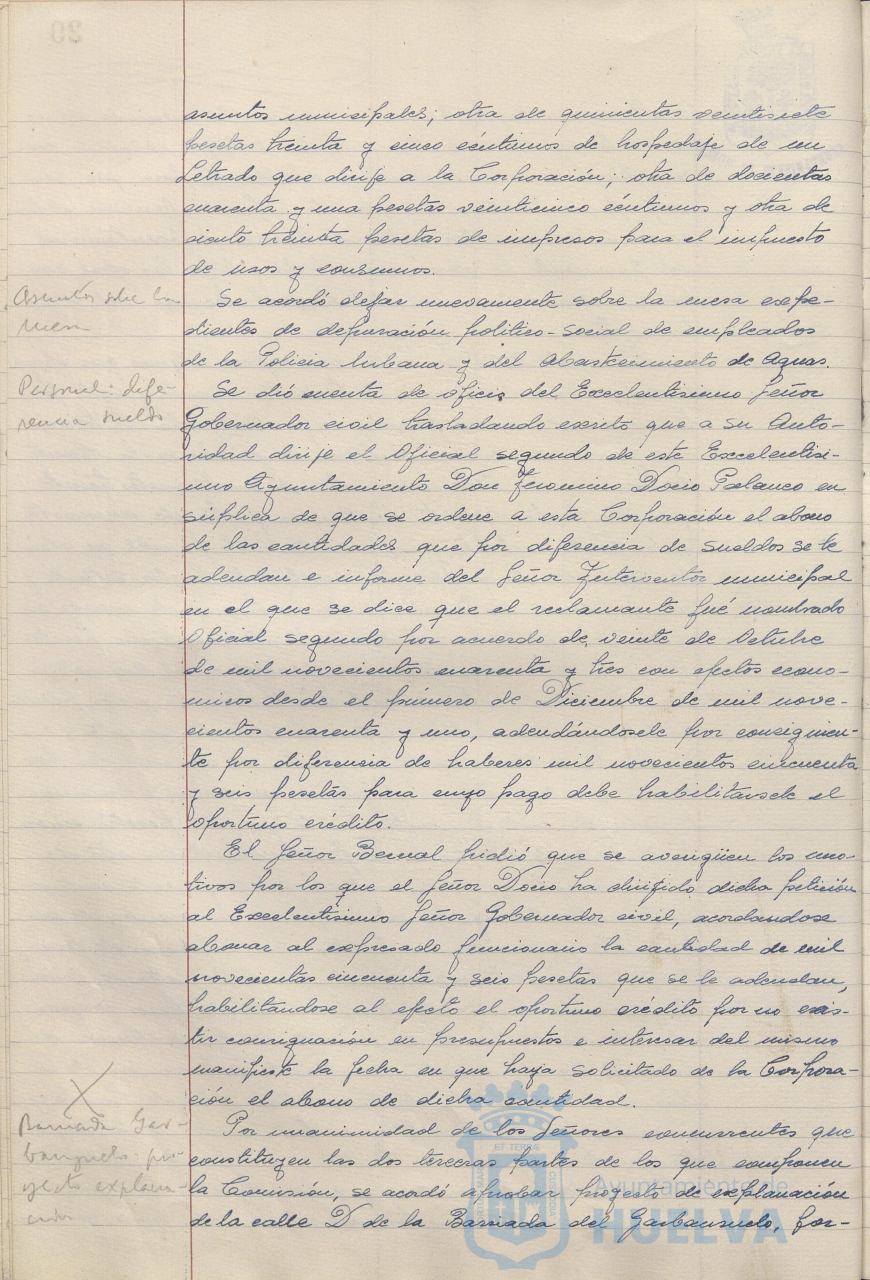 asuntos municipales; otra de quinientas veintisiete
pesetas treinta y cinco céntimos de hospedaje de un
Letrado que dirije a la Corporación; otra de docientas
cuarenta y una pesetas veinticinco céntimos y otra de
ciento treinta pesetas de impresos para el impuesto
de usos y consumos.
Asuntos sobre la
mesa
Se acordó dejar nuevamente sobre la mesa expe-
dientes de depuración politico-social de empleados
de la Policia Urbana y del Abastecimiento de Aguas.
Personal: dife-
rencia sueldo
Se dió cuenta de oficio del Excelentisimo Señor
Gobernador civil trasladando escrito que a su Auto-
ridad dirije el Oficial segundo de este Excelentisi-
mo Ayuntamiento Don Jeronimo Docio Palanco en
súplica de que se ordene a esta Corporación el abono
de las cantidades que por diferencia de sueldos se le
adeudan e informe del Señor Interventor municipal
en el que se dice que el reclamante fué nombrado
Oficial segundo por acuerdo de veinte de Octubre
de mil novecientos cuarenta y tres con efectos econo-
micos desde el primero de Diciembre de mil nove-
cientos cuarenta y uno, adeudándosele por consiguien-
te por diferencia de haberes mil novecientos cincuenta
y seis pesetas para cuyo pago debe habilitarsele el
oportuno crédito.
El Señor Bernal pidió que se averigüen los mo-
tivos por los que el Señor Docio ha dirijido dicha petición
al Excelentisimo Señor Gobernador civil, acordandose
abonar al expresado funcionario la cantidad de mil
novecientas cincuenta y seis pesetas que se le adeudan,
habilitandose al efecto el oportuno crédito por no exis-
tir consignación en presupuestos e interesar del mismo
manifieste la fecha en que haya solicitado de la Corpora-
ción el abono de dicha cantidad.
X
Barriada Gar-
banzuelo: pro-
yecto explana-
ción
Por unanimidad de los Señores concurrentes que
constituyen las dos terceras partes de los que componen
la Comisión, se acordó aprobar proyecto de explanación
de la calle D de la Barriada del Garbanzuelo, for-
Ayuntamiento de
HUELVA